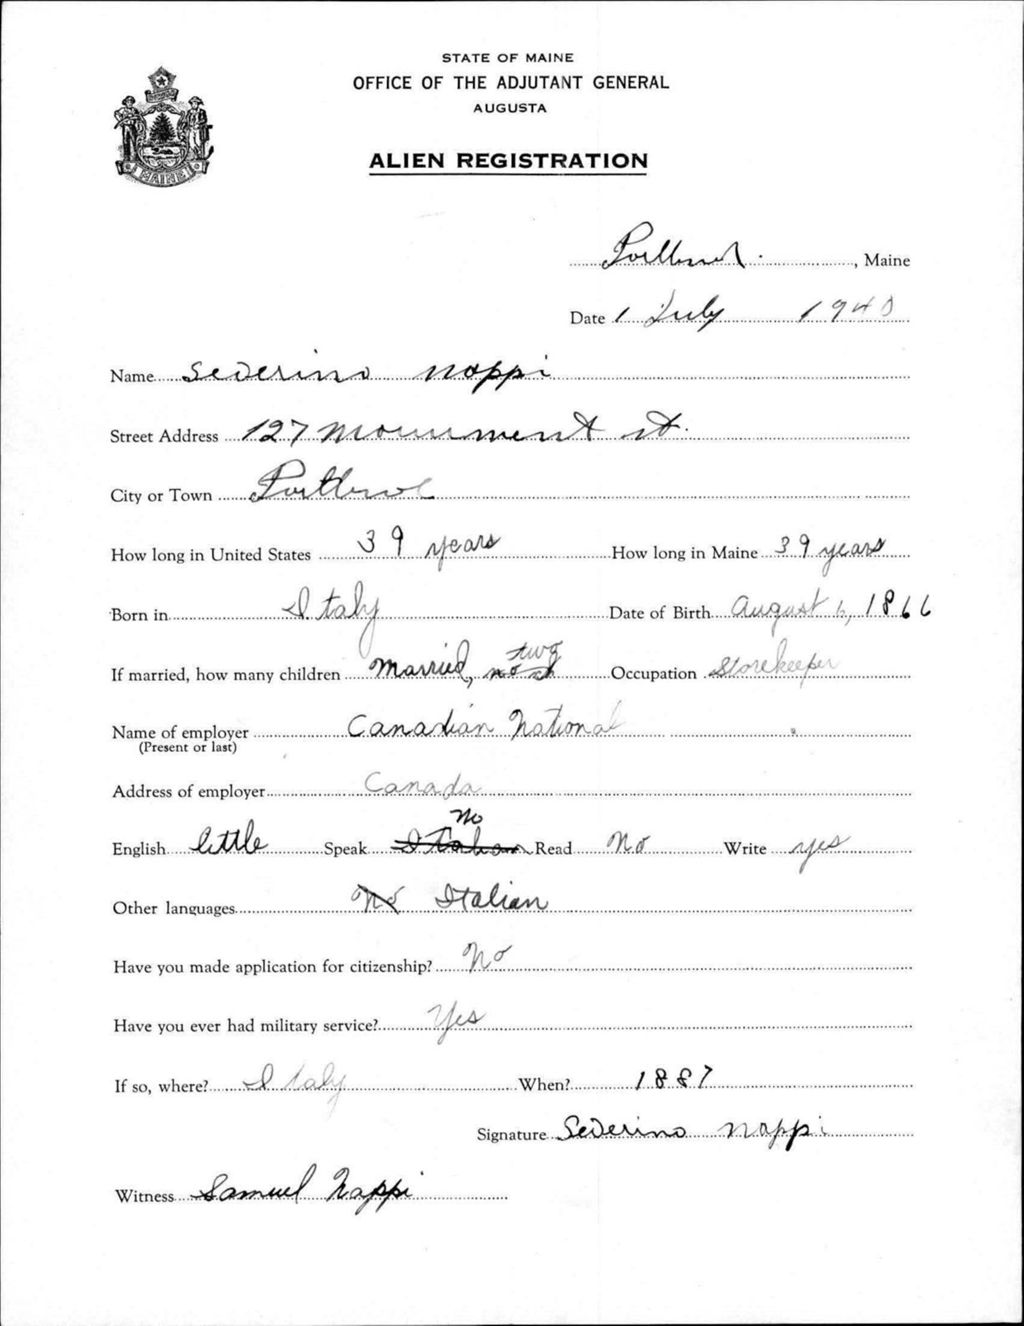 STATE OF MAINE
OFFICE OF THE ADJUTANT GENERAL
AUGUSTA
ALIEN REGISTRATION
MAINE
Portland, Maine
Date 1 July 1940
Name Severino Nappi
Street Address 127 Monument St.
City or Town Portland
How long in United States 39 years How long in Maine 39 years
Born in Italy Date of Birth August 6, 1866
If married, how many children Married, two Occupation Storekeeper
Name of employer Canadian National
(Present or last)
Address of employer Canada
No
English little Speak Italian Read No Write yes
Other languages No Italian
Have you made application for citizenship? No
Have you ever had military service? Yes
If so, where? Italy When? 1887
Signature Severino Nappi
Witness Samuel Nappi